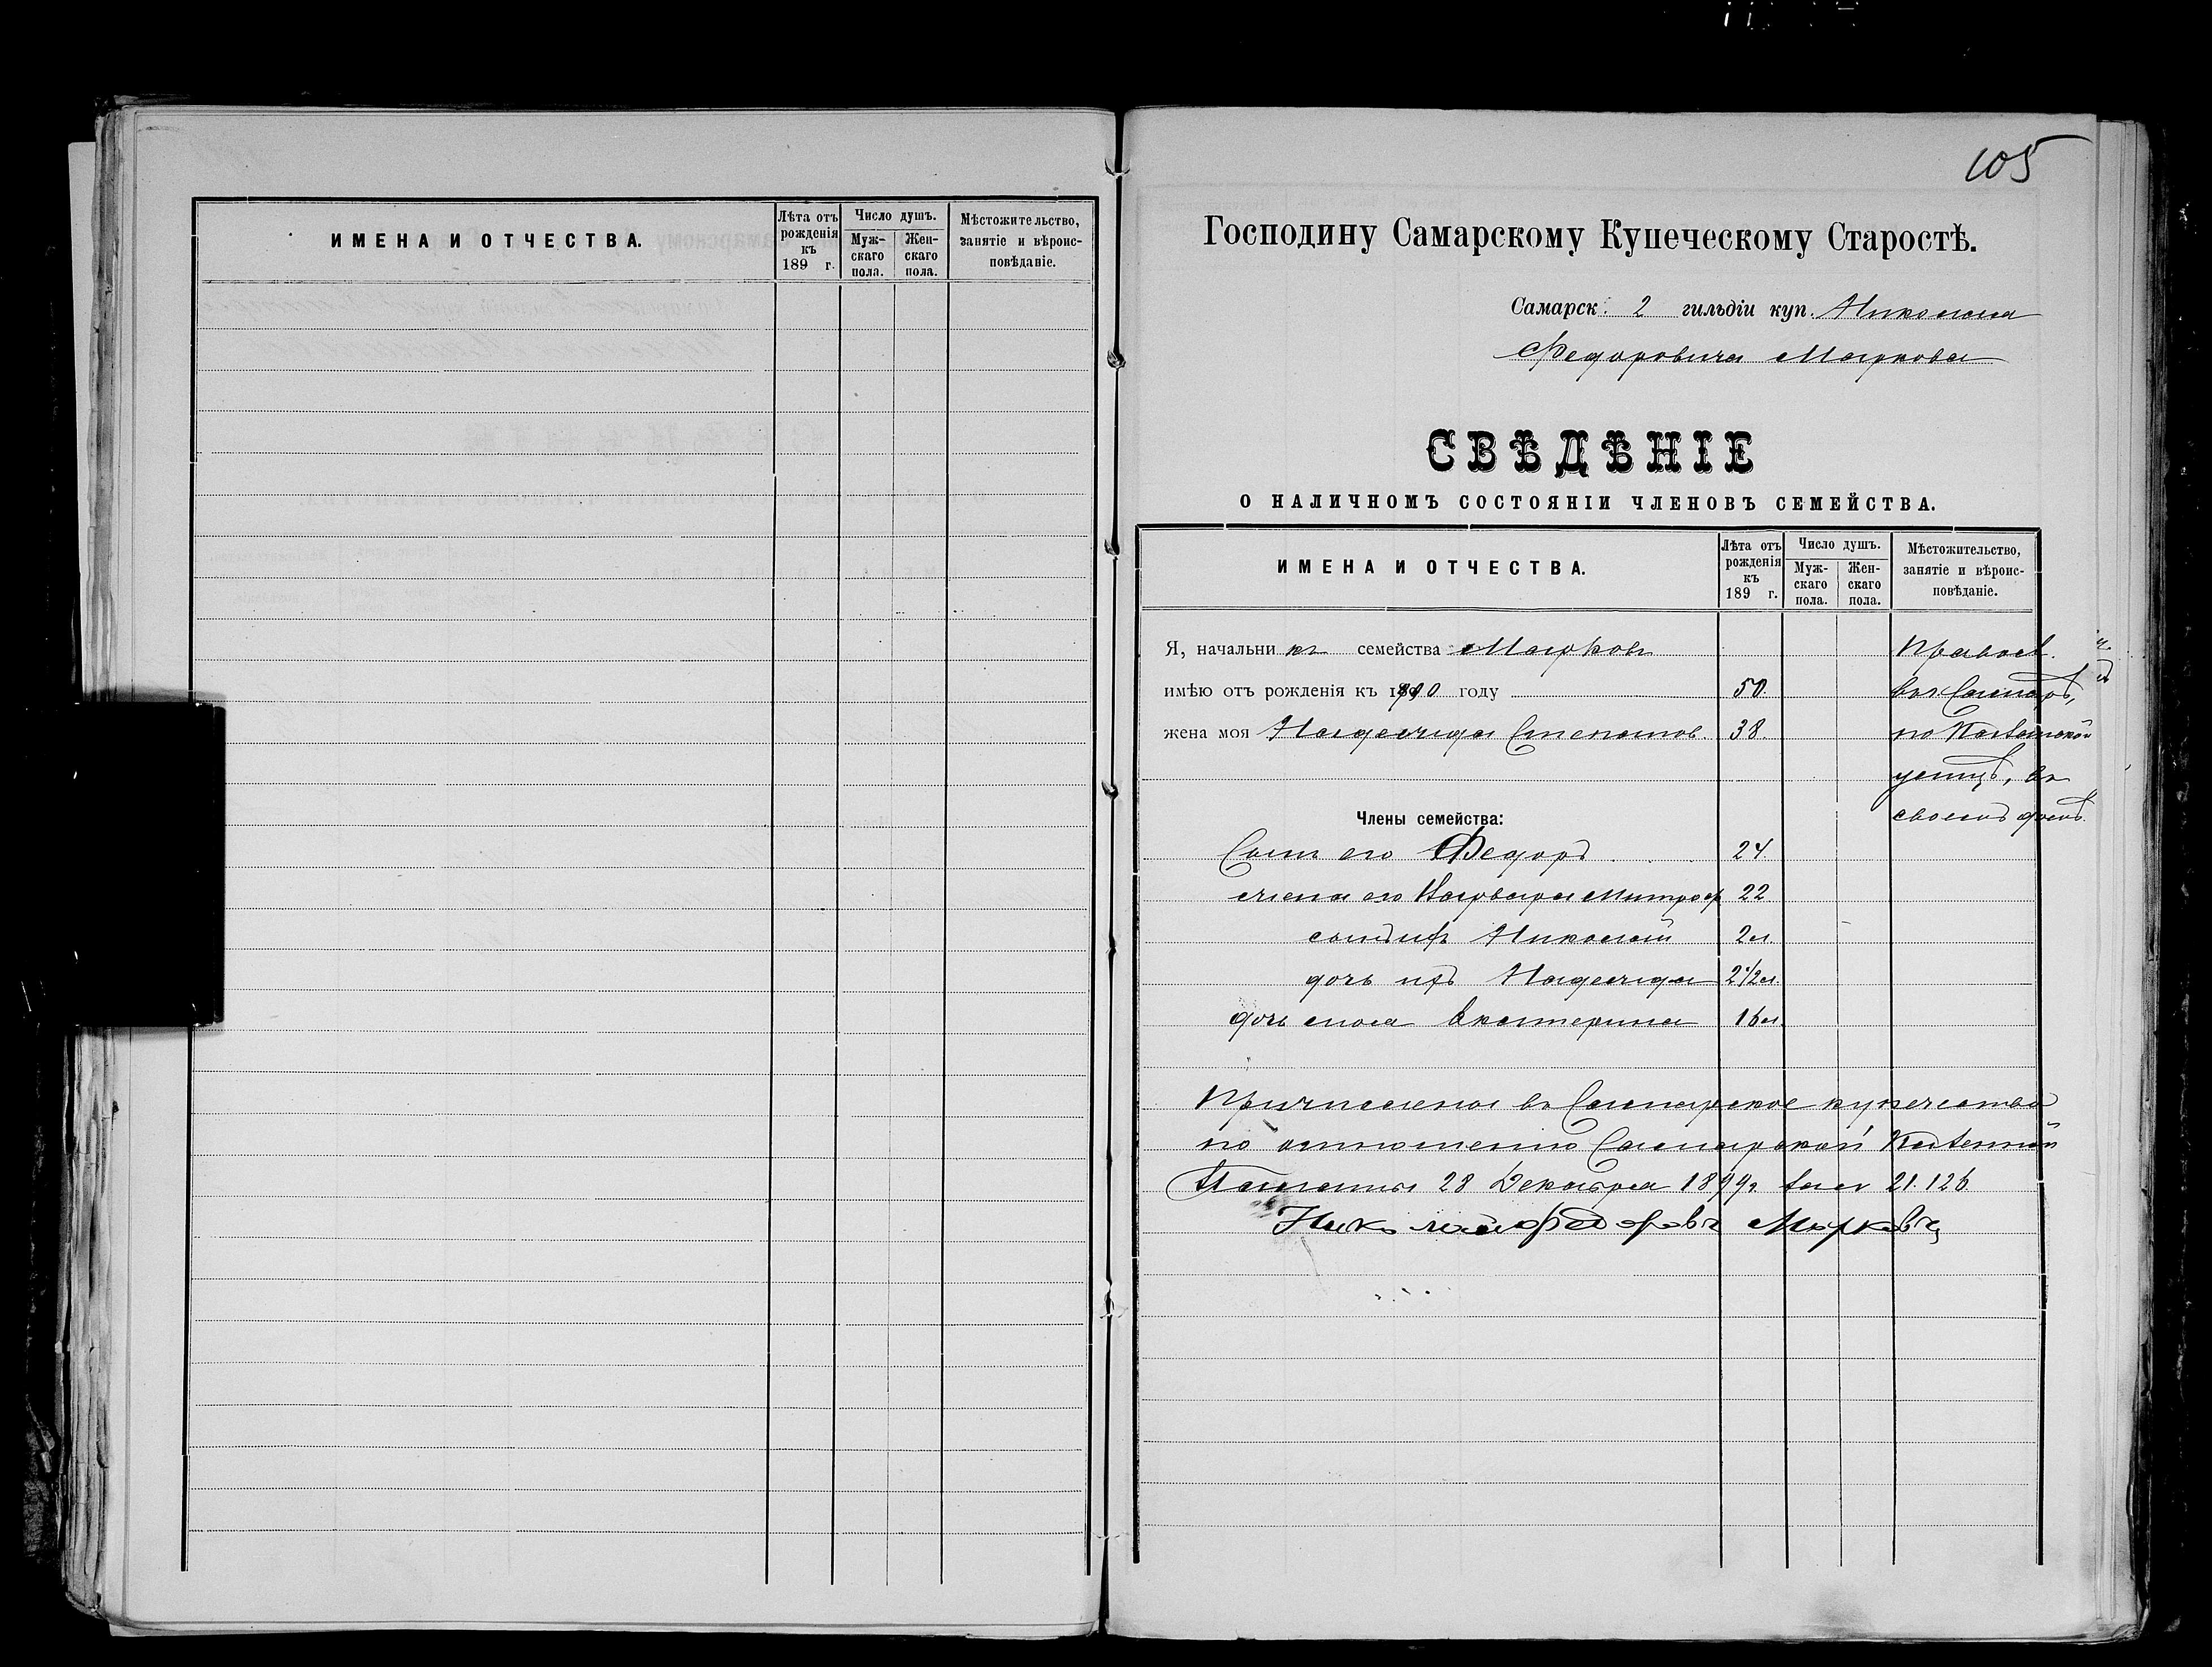 ИМЕНА И ОТЧЕСТВА.
Лѣта отъ рожденія къ 189 г.
Число душъ.
Муж-
скаго
пола.
Жен-
скаго
пола.
Мѣстожительство,
занятіе и вѣроис-
повѣданіе.
105
Господину Самарскому Купеческому Старостѣ.
Самарск. 2 гильдіи куп. Николая
Федоровича Маркова
СВѢДѢНІЕ
О НАЛИЧНОМЪ СОСТОЯНІИ ЧЛЕНОВЪ СЕМЕЙСТВА.
ИМЕНА И ОТЧЕСТВА.
Лѣта отъ
рожденія
къ
189 г.
Число душъ.
Муж-
скаго
пола.
Жен-
скаго
пола.
Мѣстожительство,
занятіе и вѣроис-
повѣданіе.
Я, начальникъ семейства Марковъ Правосл.
имѣю отъ рожденія къ 1900 году 50. въ Самарѣ,
жена моя Надежда Степанов. 38. по Казанской
улицѣ, въ
Члены семейства: своемъ домѣ.
Сынъ его Федоръ 24.
жена его Варвара Митроф 22
сынъ ихъ Николай 2 л.
дочь ихъ Надежда 2 1/2 л.
дочь моя Екатерина 16 л.
Причислена въ Самарское купечество
по отношенію Самарской Казенной
Палаты 28 Декабря 1899г. за № 21.126
Николай Федоровъ Марковъ